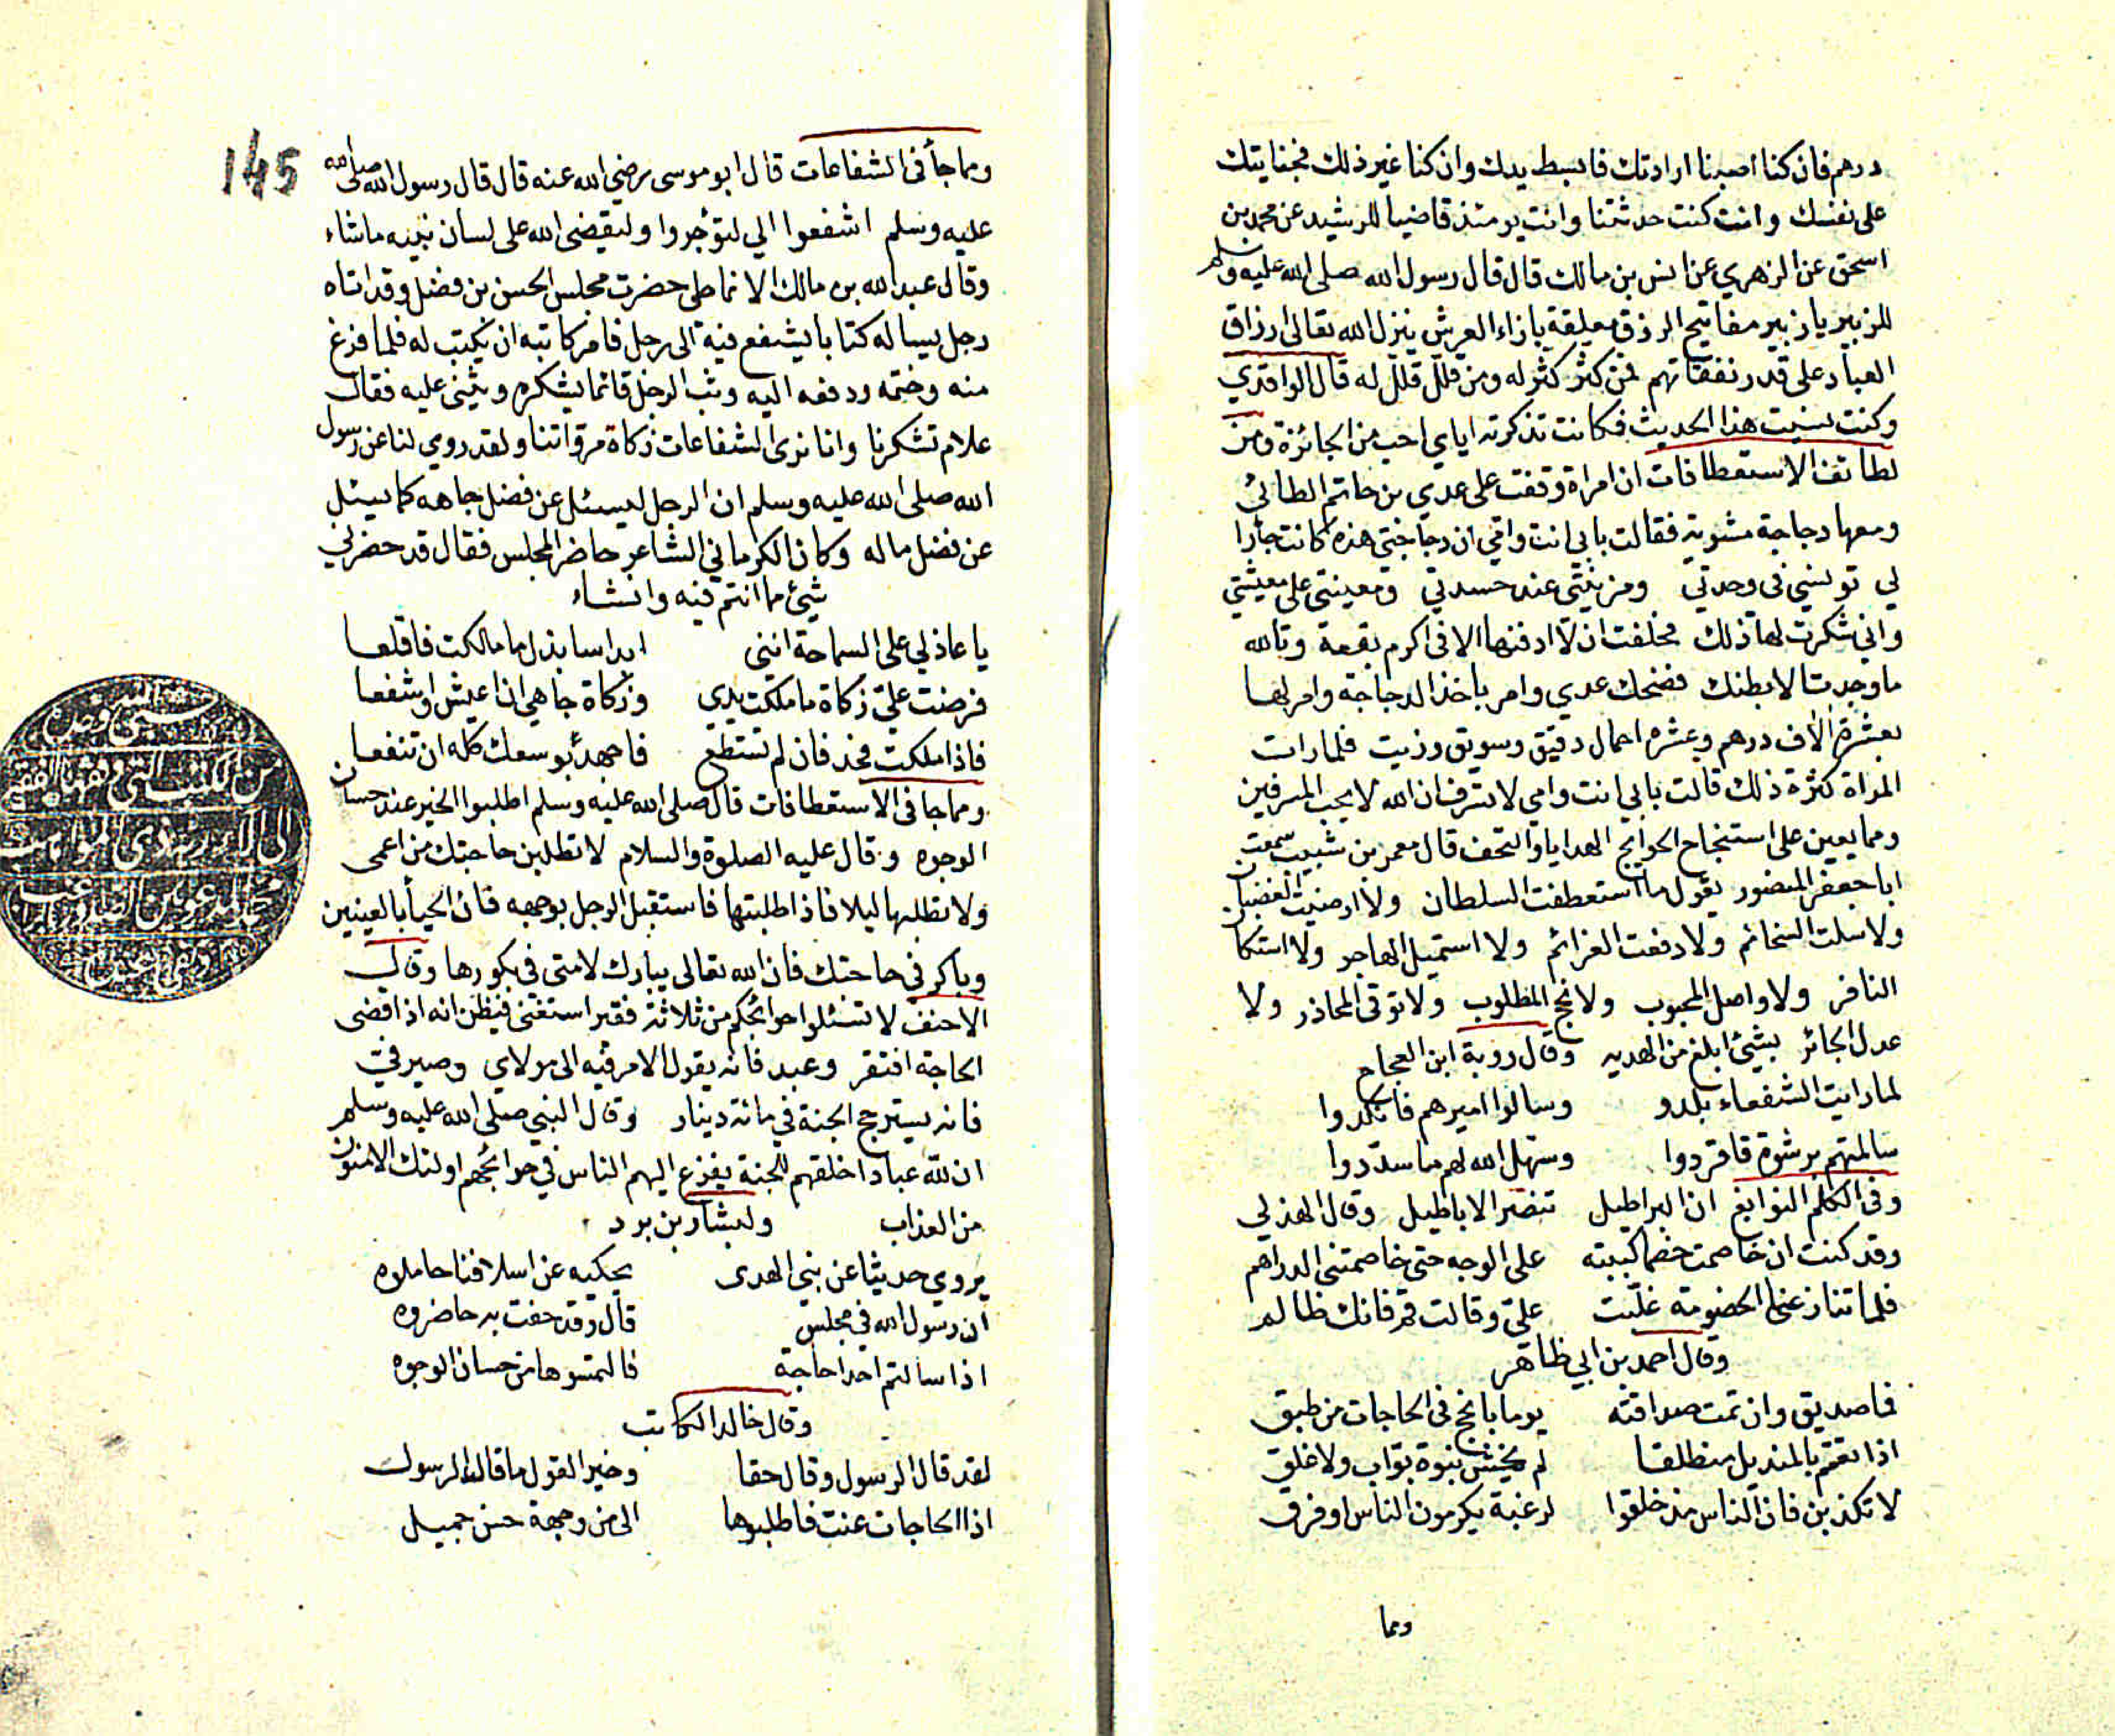 درهم فان كنا اصبنا ارادتك فابسط يدك وان كنا غير ذلك فجنايتك
على نفسك وانت كنت حدثتنا وانت يومئذ قاضيا للرشيد عن محمد بن
اسحق عن الزهري عن انس بن مالك قال قال رسول الله صلى الله عليه وسلم
للزبير يا زبير مفاتيح الرزق معلقة بازاء العرش ينزل الله تعالى ارزاق
العباد على قدر نفقاتهم فمن كثر كثر له ومن قلل قلل له قال الواقدي
وكنت نسيت هذا الحديث فكانت تذكرته اياي احب من الجائزة ومن
لطائف الاستعطافات ان امراة وقفت على عدي بن حاتم الطائي
ومعها دجاجة مشوية فقالت بابي انت وامي ان دجاجتي هذه كانت جارا
لي تونسني في وحدتي ومزينتي عند حسدتي ومعينتي على معيشتي
واني شكرت لها ذلك فحلفت ان لا ادفنها الا في اكرم بقعة وتالله
ما وجدت الا بطنك فضحك عدي وامر باخذ الدجاجة وامر لها
بعشرة الاف درهم وعشره احمال دقيق وسويق وزيت فلما رات
المراة كثرة ذلك قالت بابي انت وامي لا تسرف ان الله لا يحب المسرفين
ومما يعين على استنجاح الحوايج الهدايا والتحف قال معمر بن شبيب سمعت
ابا جعفر المنصور يقول ما استعطفت السلطان ولا ارضيت الغضبان
ولا سلت السخائم ولا دفعت الغرائم ولا استميل الهاجر ولا
النافر ولا واصل المحبوب ولا نجح المطلوب ولا توقى المحاذر ولا
عدل الجائر بشئ ابلغ من الهديه وقال روبة ابن العجاج
لما رايت الشفعاء بلدو وسالوا اميرهم فانكدوا
سالمتهم برشوة فاقردوا وسهل الله لهم ما سددوا
وفي الكلم النوابغ ان البراطيل تنصر الاباطيل وقال الهذلي
وقد كنت ان خاصمت خصما كببته على الوجه حتى خاصمتني الدراهم
فلما تنازعنا الخصومة غلبت علي وقالت قم فانك ظالم
وقال احمد بن ابي طاهر
فما صديق وان تمت صداقته يوما بانجح في الحاجات من طبق
اذا تعمم بالمنديل منطلقا لم يخش نبوة بواب ولا غلق
لا تكذبن فان الناس مذ خلقوا لرغبة يكرمون الناس او فرق
ومما
145
ومما جأ في الشفاعات قال ابو موسى رضي الله عنه قال قال رسول الله صلى الله
عليه وسلم اشفعوا الي لتؤجروا وليقضى الله على لسان نبيه ما شاء
وقال عبد الله بن مالك الانماطي حضرت مجلس الحسن بن فضل وقد اتاه
رجل يساله كتابا يشفع فيه الى رجل فامر كاتبه ان يكتب له فلما فرغ
منه وختمه ودفعه اليه وثب الرجل قائما يشكره ويثني عليه فقال
علام تشكرنا وانا نرى الشفاعات زكاة مرؤاتنا ولقد روي لنا عن رسول
الله صلى الله عليه وسلم ان الرجل ليسئل عن فضل جاهه كما يسئل
عن فضل ماله وكان الكرماني الشاعر حاضر المجلس فقال قد حضر لي
شئ مما انتم فيه وانشاء
يا عاذلي على السماحة انني ابدا سابذل ما مالكت فاقلعا
فرضت علي زكاة ما ملكت يدي وزكاة جاهي ان اعيش اشفعا
فاذا ملكت فجد فان لم تستطع فاجهد بوسعك كله ان تنفعا
ومما جا في الاستعطافات قال صلى الله عليه وسلم اطلبوا الخير عند حسان
الوجوه وقال عليه الصلوة والسلام لا تطلبن حاجتك من اعمى
ولا تطلبها ليلا فاذا طلبتها فاستقبل الرجل بوجهه فان الحيأ بالعينين
وباكر في حاجتك فان الله تعالى يبارك لامتى في بكورها وقال
الاحنف لا تسئلوا حوائجكم من ثلاثة فقير استغنى فيظن انه اذا قضى
الحاجة افتقر وعبد فانه يقول الامر فيه الى مولاي وصيرفي
فانه يسترجح الحبة في مائة دينار وقال النبي صلى الله عليه وسلم
ان لله عبادا خلقهم للجنة يفزع اليهم الناس في حوائجهم اولئك الامنون
من العذاب ولبشار بن برد
يروي حديثا عن نبي الهدى يحكيه عن اسلافنا حاملوه
ان رسول الله في مجلس قال وقد حفت به حاضروه
اذا سالتم احدا حاجة فالتمسوها من حسان الوجوه
وقال خالد الكاتب
لقد قال الرسول وقال حقا وخير القول ما قال الرسول
اذا الحاجات عنت فاطلبوها الى من وجهه حسن جميل